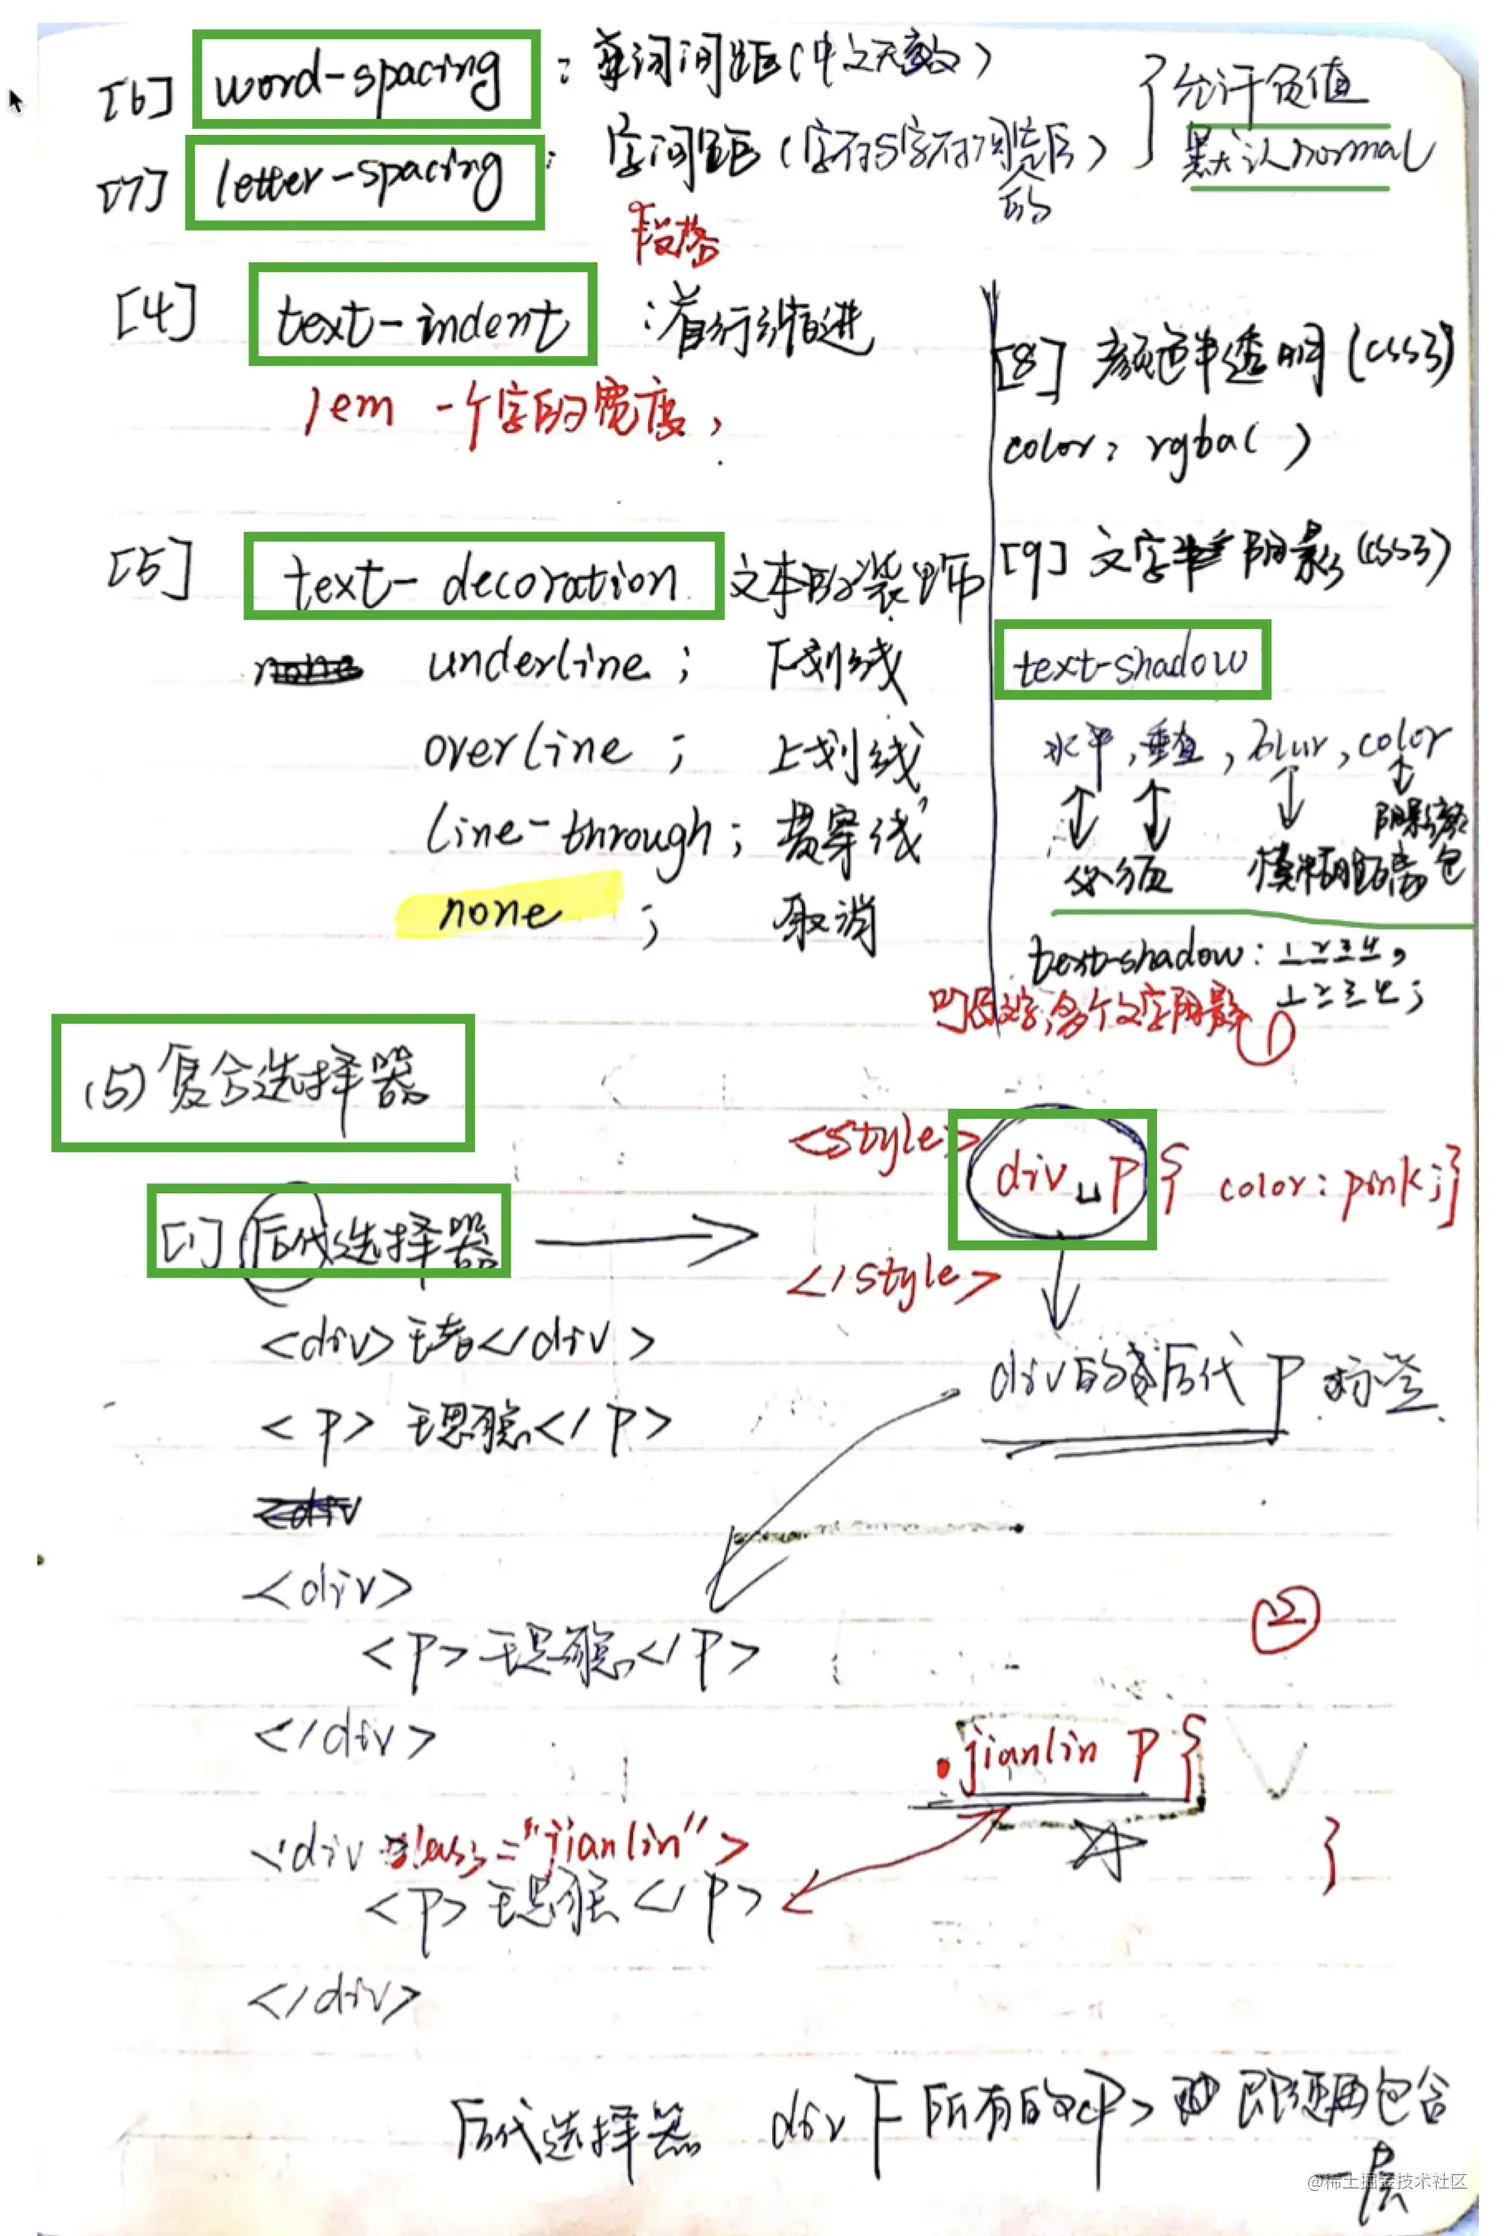 [6] word-spacing : 单词间距(中文无效)
[7] letter-spacing : 字间距(字符与字符间宽度)
的
} 允许负值
默认normal
段落
[4] text-indent : 首行缩进
1em 一个字的宽度,
[5] text-decoration 文本的装饰
none underline ; 下划线
overline ; 上划线
line-through ; 贯穿线
none ; 取消
[8] 颜色半透明(css3)
color: rgba( )
[9] 文字 阴影(css3)
text-shadow
水平,垂直,blur,color
必须 模糊距离 阴影颜色
text-shadow: 1 2 3 4,
1 2 3 4;
可以文字,多个文字阴影 ①
(5) 复合选择器
[1] 后代选择器
<style> div␣p { color: pink; }
</style>
<div>王者</div>
<p>王思聪</p>
<div
div的 后代 p 标签
<div>
<p>王思聪</p>
</div>
②
.jianlin p {
}
<div class="jianlin">
<p>王思聪</p>
</div>
后代选择器 div下所有的<p> 即便再包含
一层
@稀土掘金技术社区